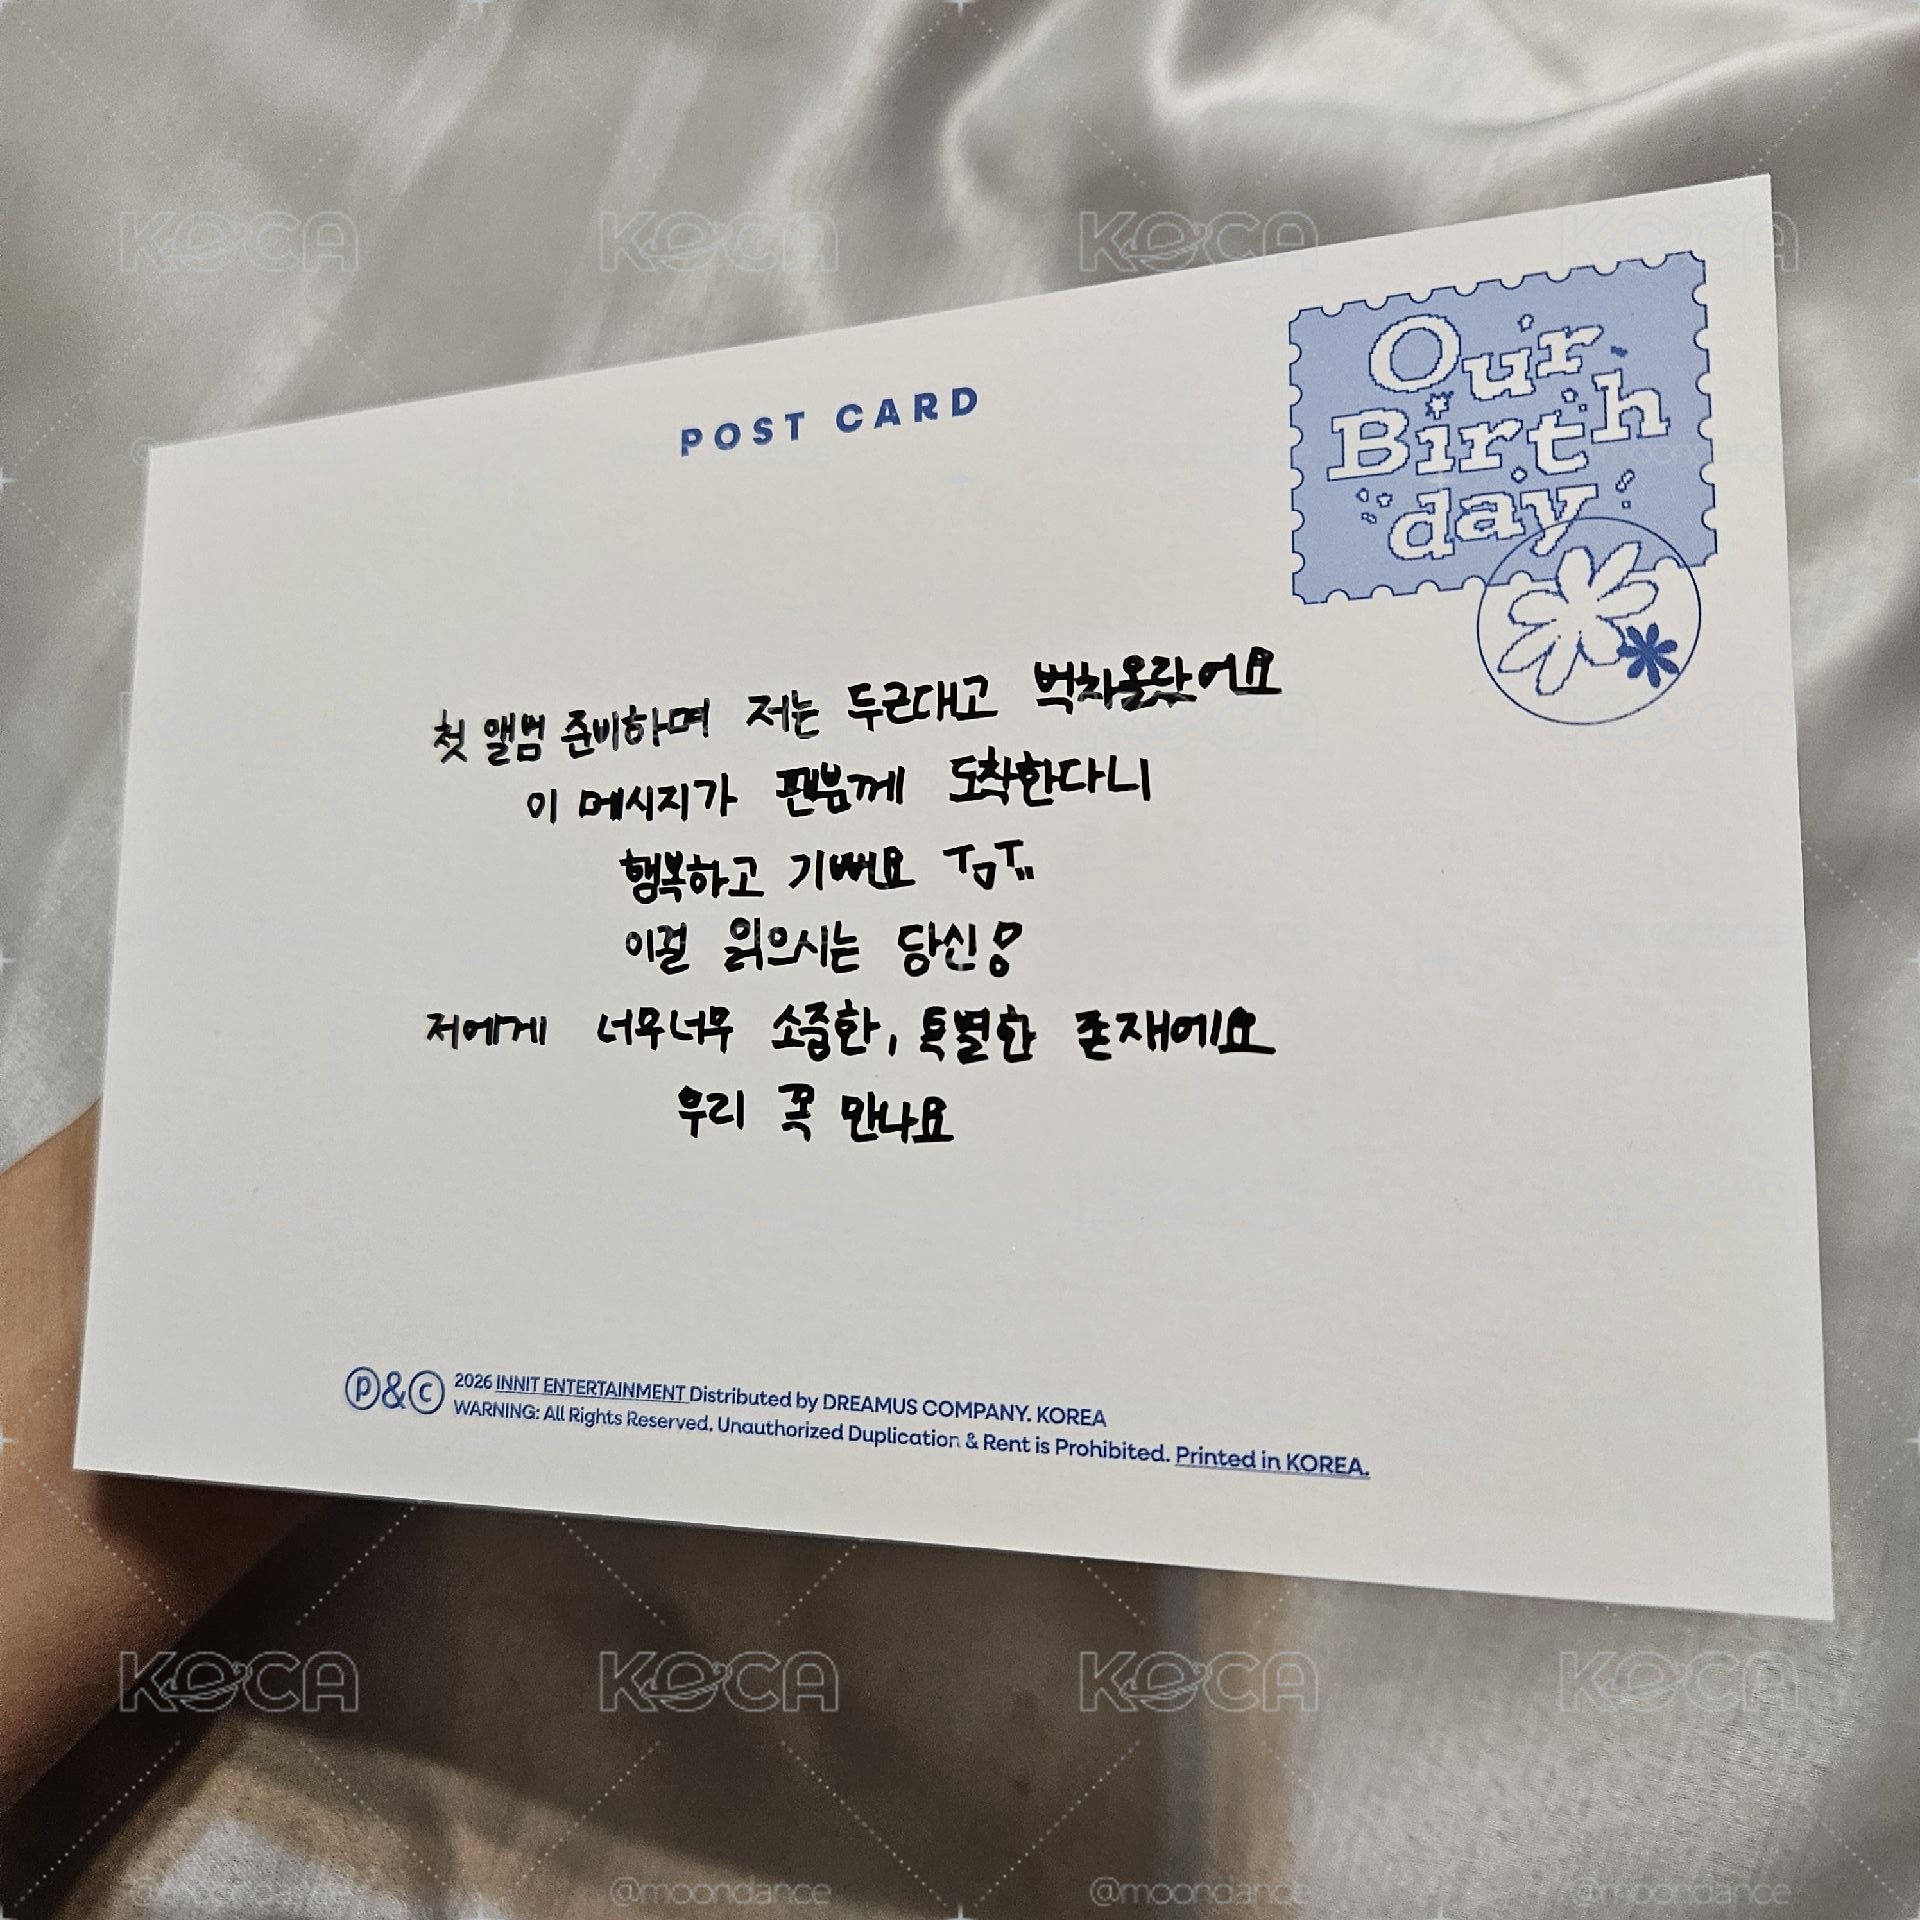 POST CARD
Our
Birth
day
첫 앨범 준비하며 저는 두근대고 벅차올랐어요
이 메시지가 팬분께 도착한다니
행복하고 기뻐요 ㅜㅁㅜ"
이걸 읽으시는 당신!
저에게 너무너무 소중한, 특별한 존재에요
우리 꼭 만나요
Ⓟ&Ⓒ 2026 INNIT ENTERTAINMENT Distributed by DREAMUS COMPANY. KOREA
WARNING: All Rights Reserved. Unauthorized Duplication & Rent is Prohibited. Printed in KOREA.
KOCA KOCA KOCA KOCA
@moondance @moondance @moondance @moondance